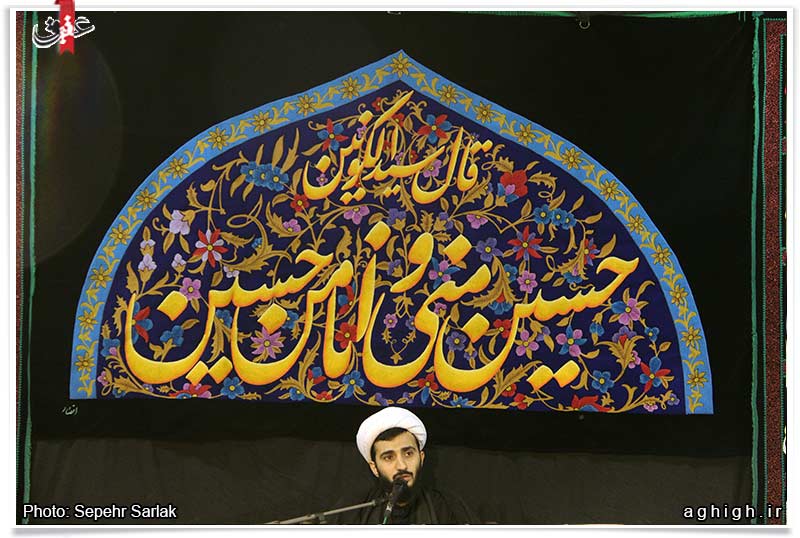 عقیق
قال سید الکونین
حسین منی و انا من حسین
افشار
Photo: Sepehr Sarlak
aghigh.ir